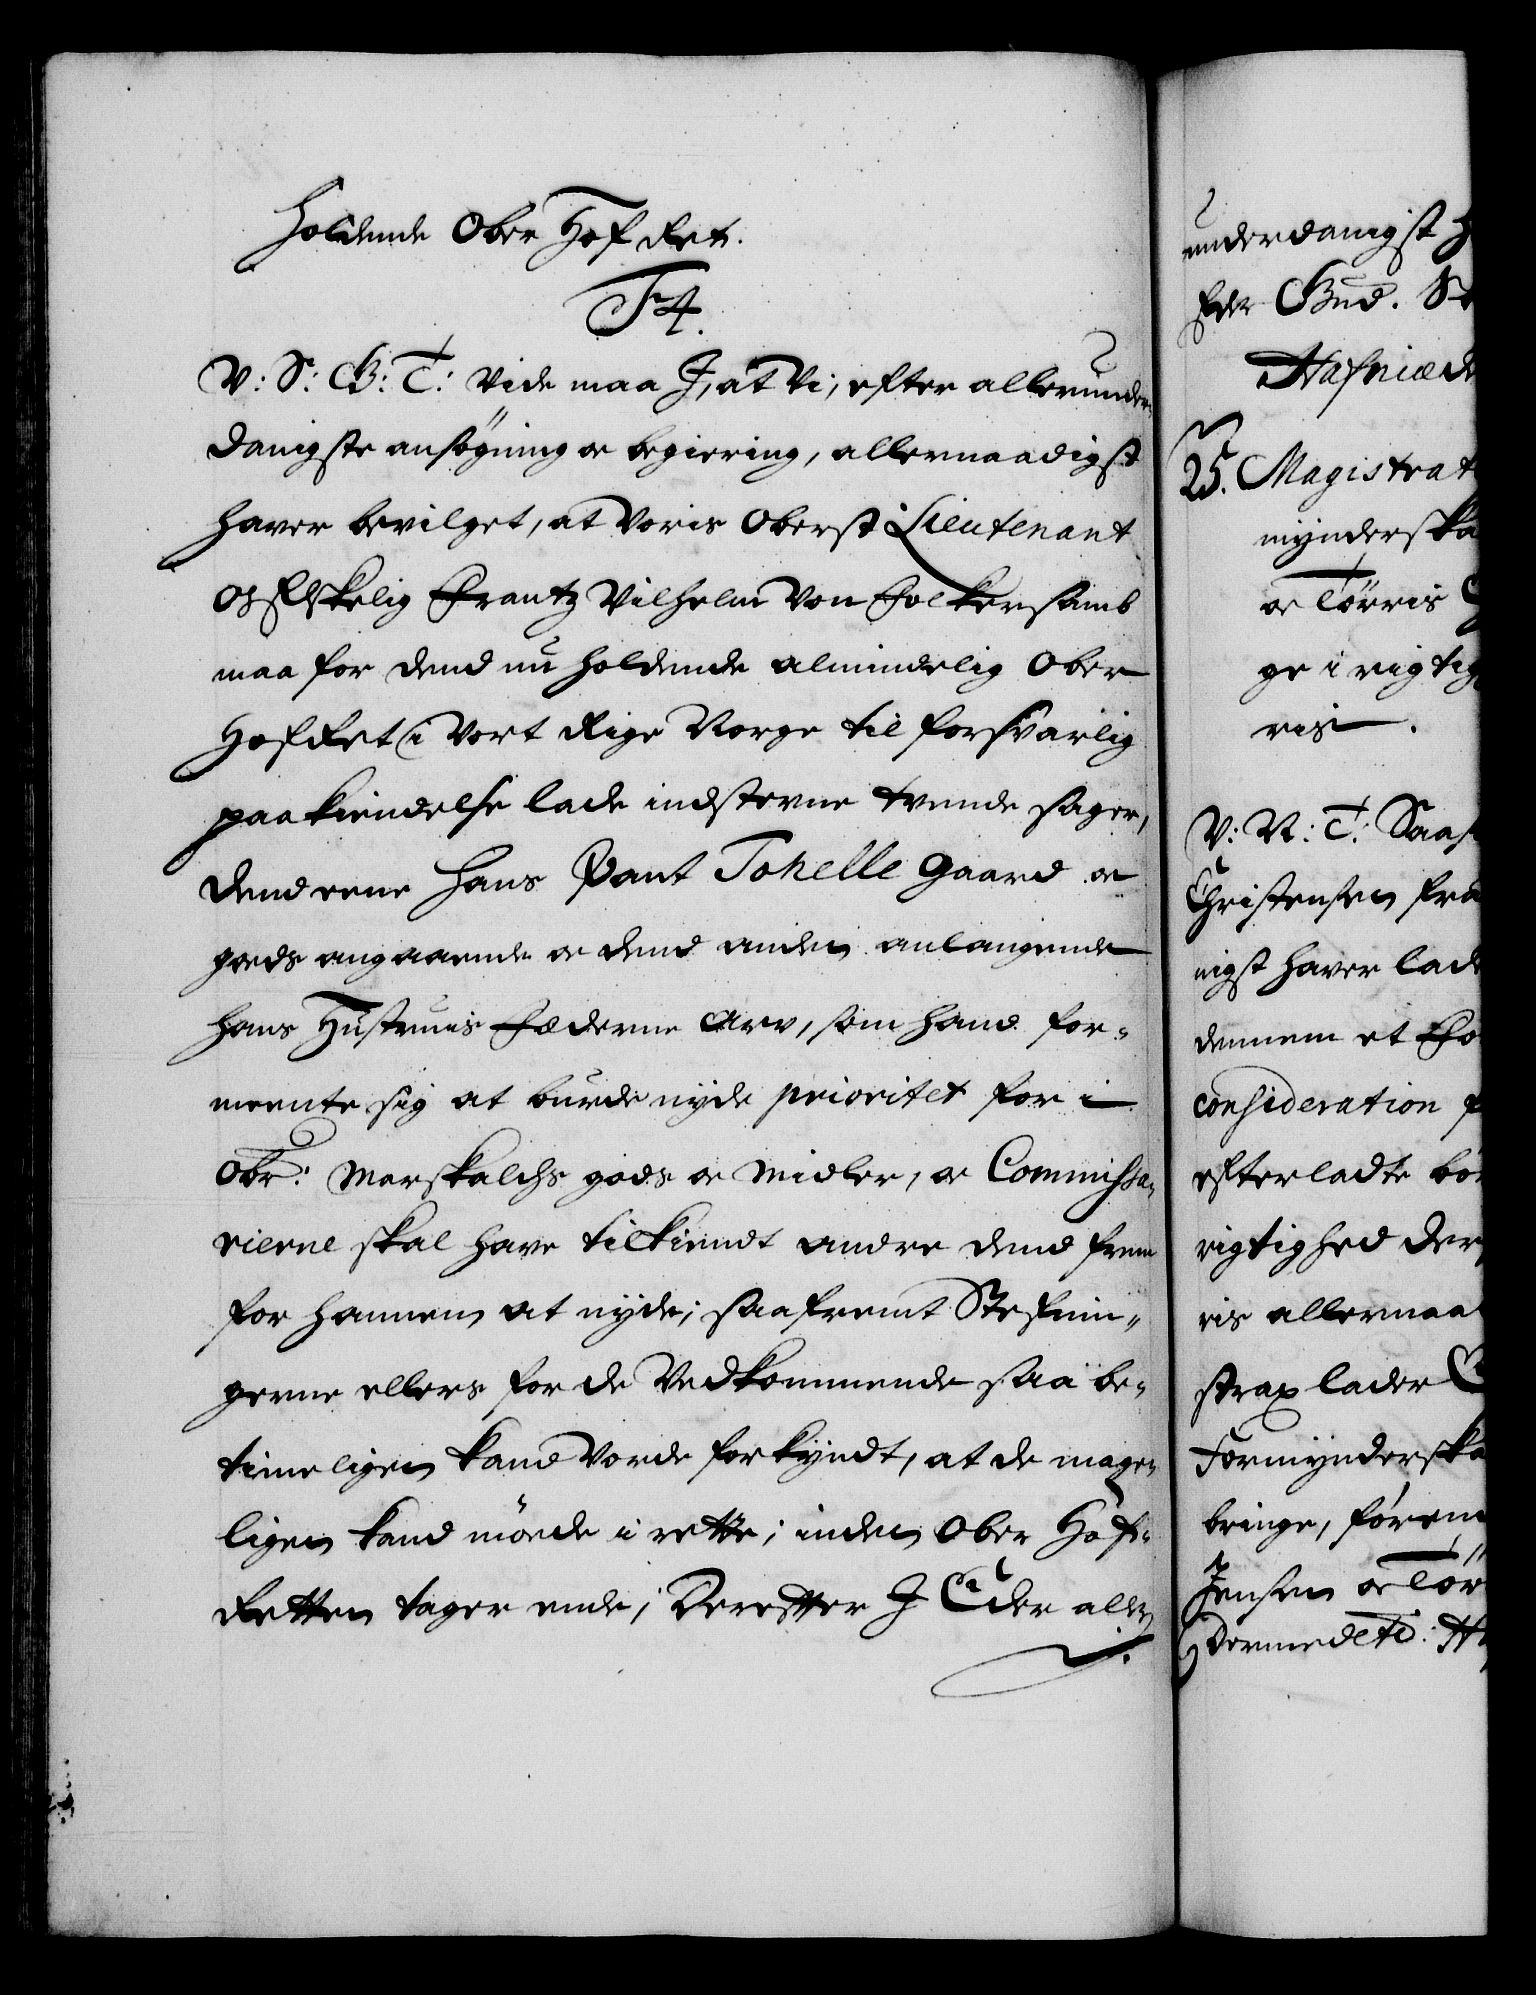 holdende Ober Hof Ret.
F4.
V: S: G: T: Vide maa J, at Vi, efter allerunder-
danigste ansøgning oc begiering, allernaadigst
haver bevilget, at Voris Oberst Lieutenant
Os Elskelig Frantz Vilhelm Von Folkersamb
maa for dend nu holdende almindelig Ober
Hof Ret i Vort Rige Norge til forsvarlig
paakiendelse lade indstevne tvende sager,
dend eene hans Pant Tohelle Gaard oc
gods angaaende oc dend anden anlangende
hans Hustruis Fæderne Arv, som hand for-
meente sig at burde nyde prioritet for i
Obr: Marskalchs gods oc Midler, oc Commissa-
rierne skal have tilkiendt andre dend frem
for hannem at nyde; saafremt Stefnin-
gerne ellers for de Vedkommende saa be-
timeligen kand Vorde forkyndt, at de mage-
ligen kand møede i rette; inden Ober Hof-
Retten tager ende; Derefter J Eder aller
underdanigst
Eder Gud.
Hafniæ d
25. Magistrat
mynderska
oc Törris
ge i rigtig
ris.
V: N: T: Saas
Christensen fra
nigst haver lad
dennem et Fo
consideration
efterladte bör
rigtighed der
ris allernaa
strax lader
Formynderska
bringe, føren
Jensen oc Tör
Dermed etc: H